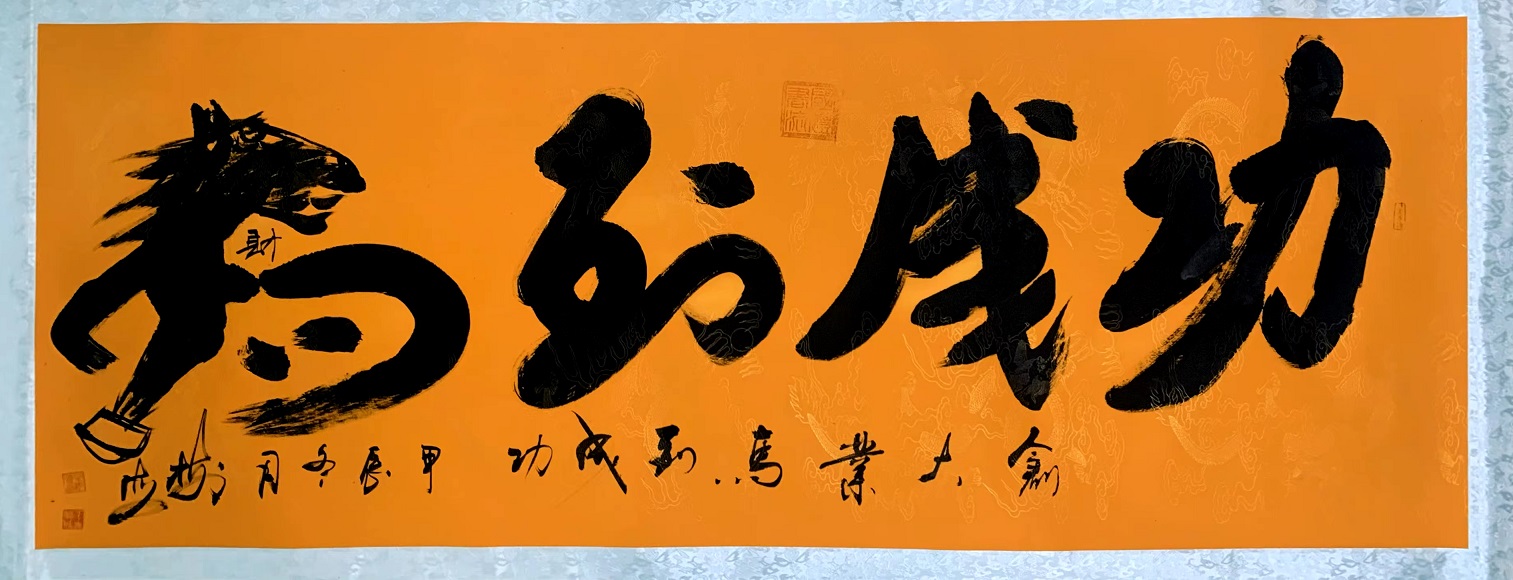 馬到成功
財
創大業馬到成功 甲辰冬月